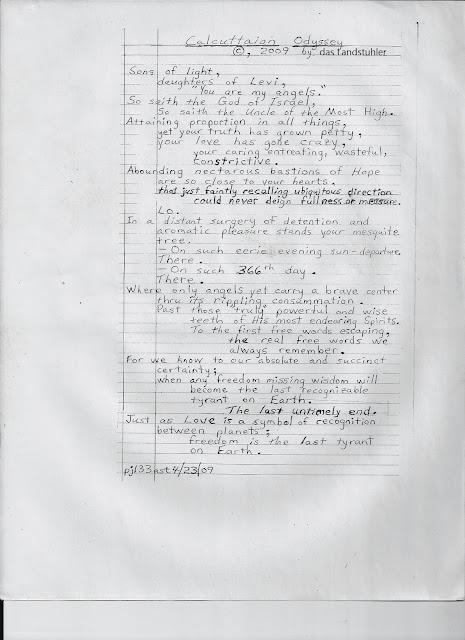 Calcuttaion Odyssey
©, 2009 by das Landstuhler.
Sons of light,
daughters of Levi,
"You are my angels."
So saith the God of Israel,
So saith the Uncle of the Most High.
Attaining proportion in all things,
yet your truth has grown petty,
your love has gone crazy,
your caring entreating, wasteful,
constrictive.
Abounding nectarous bastions of Hope
are so close to your hearts.
that just faintly recalling ubiquitous direction
could never deign fullness or measure.
Lo.
In a distant surgery of detention and
aromatic pleasure stands your mesquite
tree.
— On such eerie evening sun-departure.
There.
— On such 366th day.
There.
Where only angels yet carry a brave center
thru its rippling consummation.
Past those truly powerful and wise
teeth of His most endearing Spirits.
To the first free words escaping,
the real free words we
always remember.
For we know to our absolute and succinct
certainty;
when any freedom missing wisdom will
become the last recognizable
tyrant on Earth.
The last untimely end.
Just as Love is a symbol of recognition
between planets;
freedom is the last tyrant
on Earth.
pj133ast4/23/09